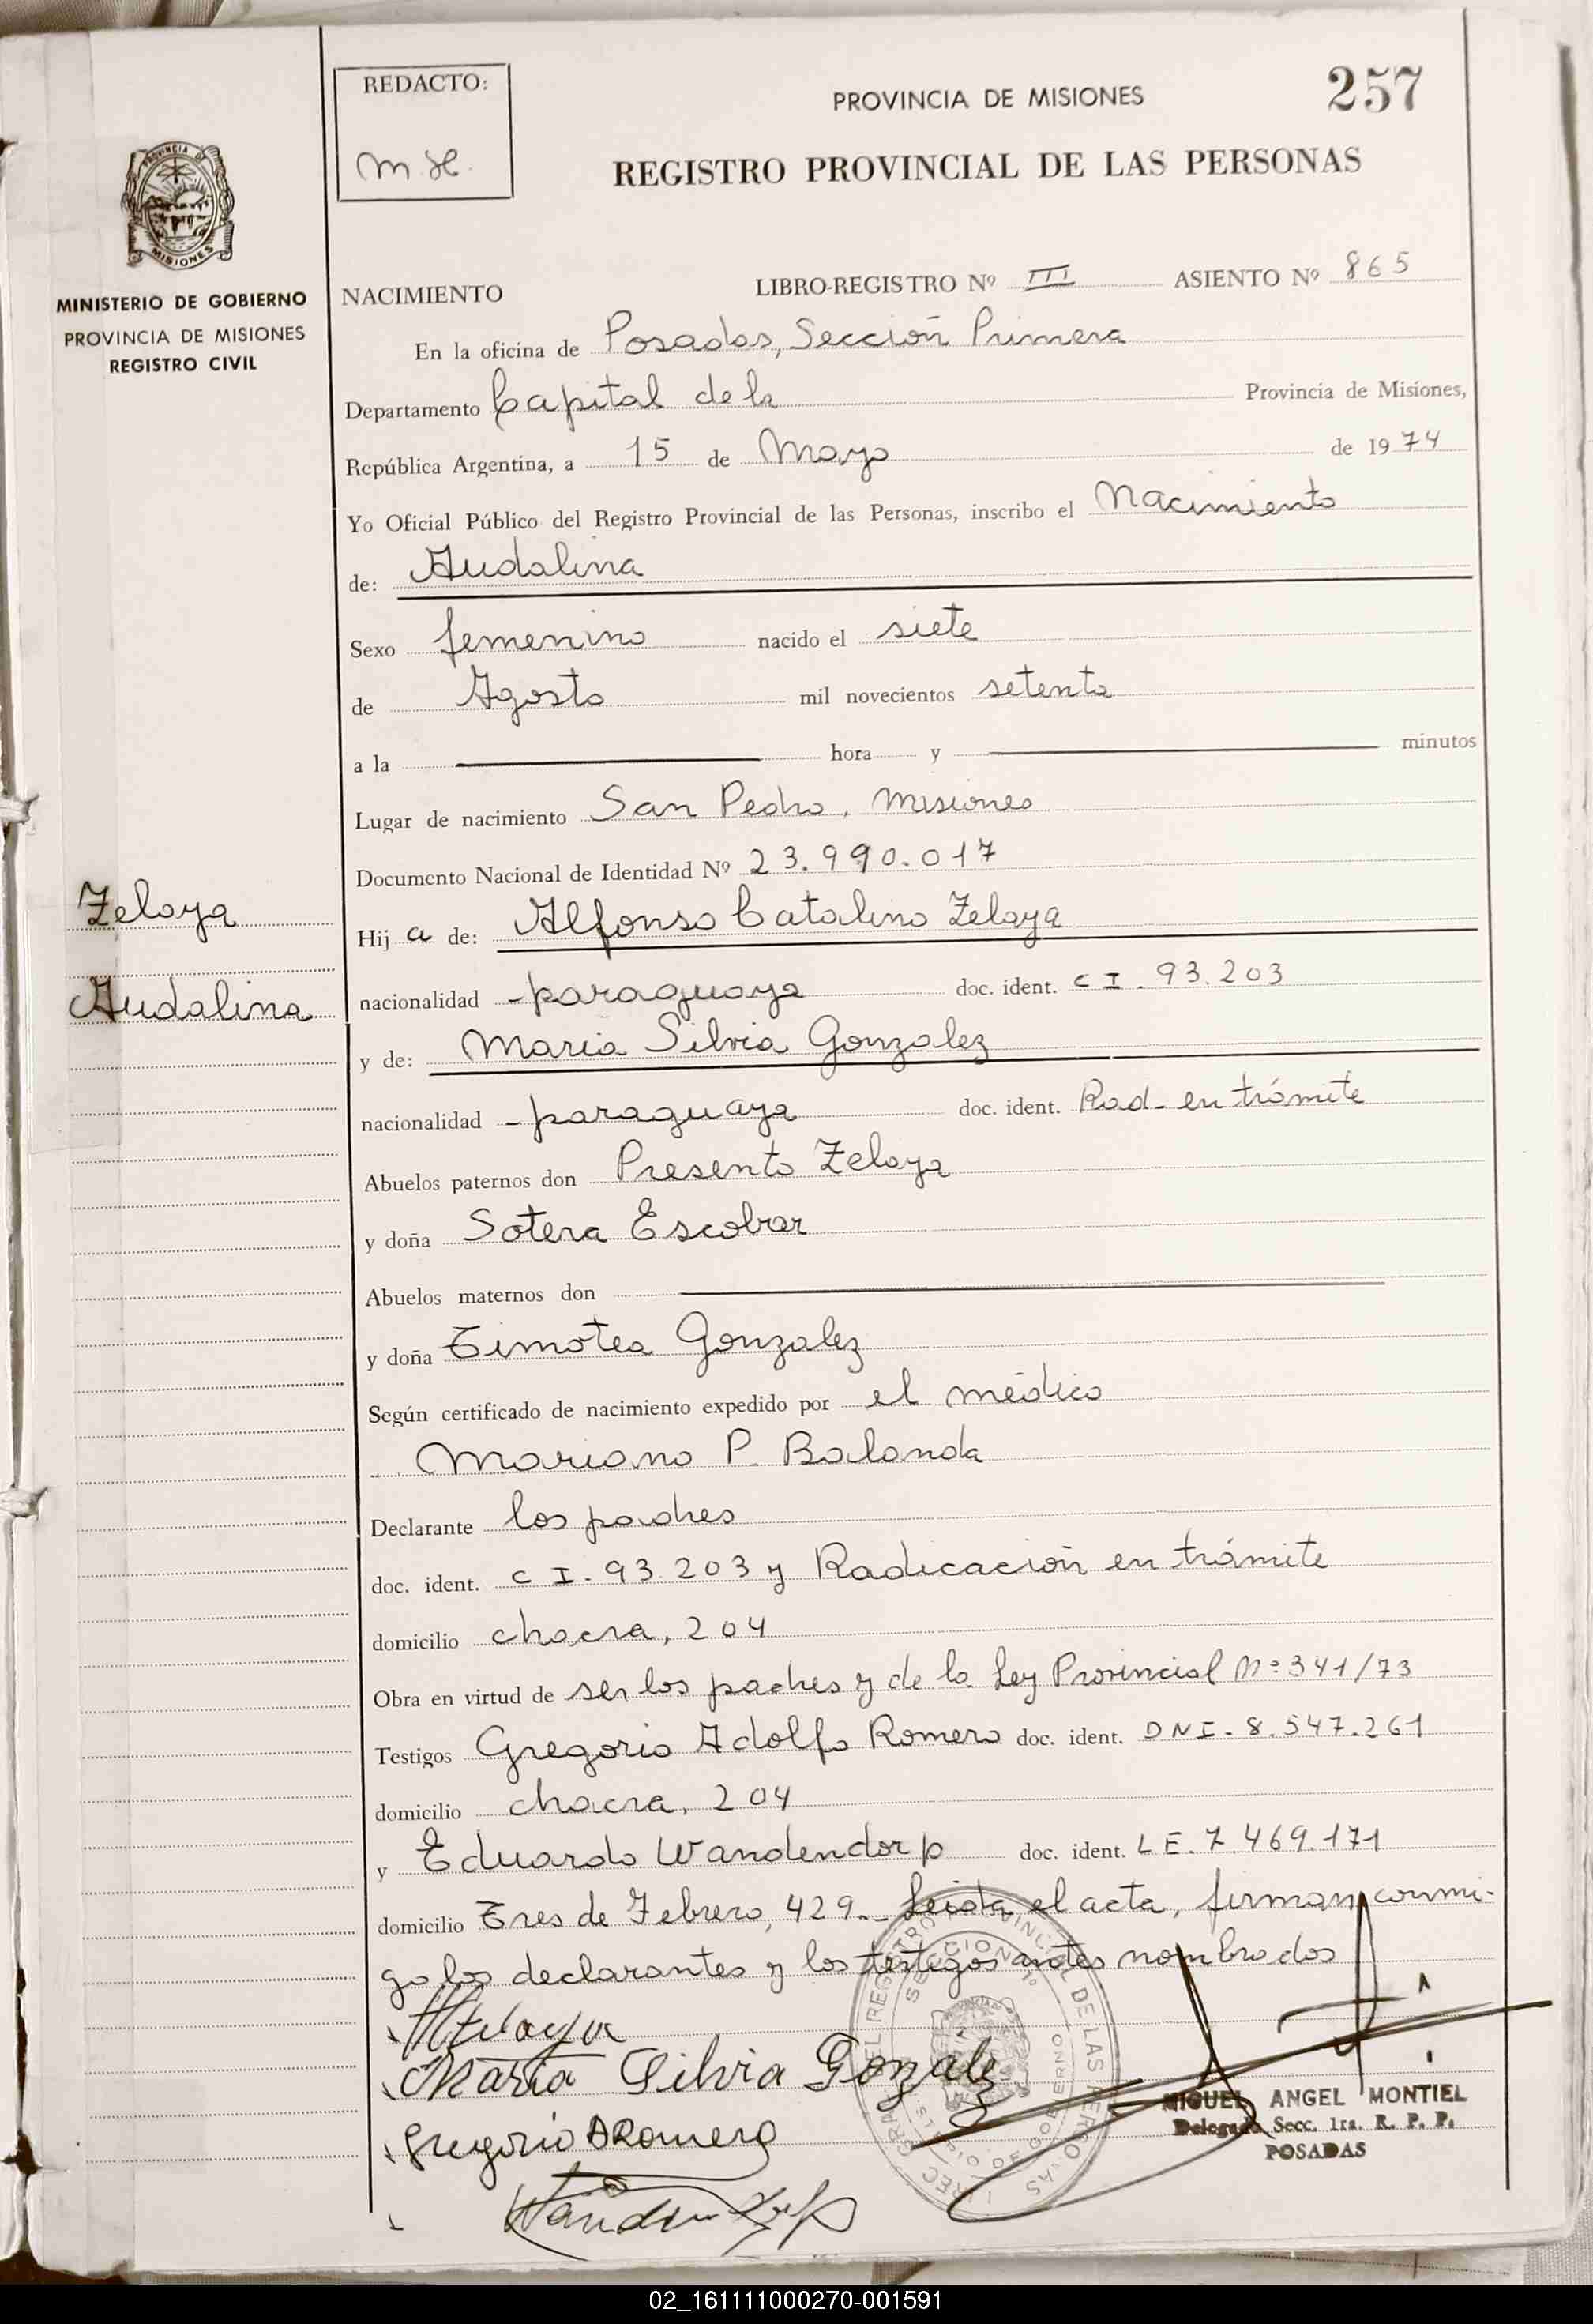 REDACTO:
M. H.
PROVINCIA DE MISIONES
257
REGISTRO PROVINCIAL DE LAS PERSONAS
PROVINCIA DE
MISIONES
MINISTERIO DE GOBIERNO
PROVINCIA DE MISIONES
REGISTRO CIVIL
NACIMIENTO LIBRO-REGISTRO Nº III ASIENTO Nº 865
En la oficina de Posadas, Sección Primera
Departamento Capital de la Provincia de Misiones,
República Argentina, a 15 de Mayo de 1974
Yo Oficial Público del Registro Provincial de las Personas, inscribo el Nacimiento
de: Audalina
Sexo femenino nacido el siete
de Agosto mil novecientos setenta
a la hora y minutos
Lugar de nacimiento San Pedro, Misiones
Documento Nacional de Identidad Nº 23.990.017
Zelaya
Audalina
Hij a de: Alfonso Catalino Zelaya
nacionalidad -paraguaya doc. ident. C I. 93.203
y de: Maria Silvia Gonzalez
nacionalidad -paraguaya doc. ident. Rad- en trámite
Abuelos paternos don Presento Zelaya
y doña Sotera Escobar
Abuelos maternos don
y doña Timotea Gonzalez
Según certificado de nacimiento expedido por el médico
Mariano P. Balanda
Declarante los padres
doc. ident. C I. 93.203 y Radicación en trámite
domicilio chacra, 204
Obra en virtud de ser los padres y de la Ley Provincial Nº 341/73
Testigos Gregorio Adolfo Romero doc. ident. DNI- 8.547.261
domicilio chacra, 204
y Eduardo Wandendorp doc. ident. LE. 7.469.171
domicilio Tres de Febrero, 429.- Leida el acta, firman conmi-
go los declarantes y los testigos antes nombrados
AZelaya
Maria Silvia Gonzalez
Gregorio A Romero
MIGUEL ANGEL MONTIEL
Delegado Secc. 1ra. R. P. P.
POSADAS
02_161111000270-001591